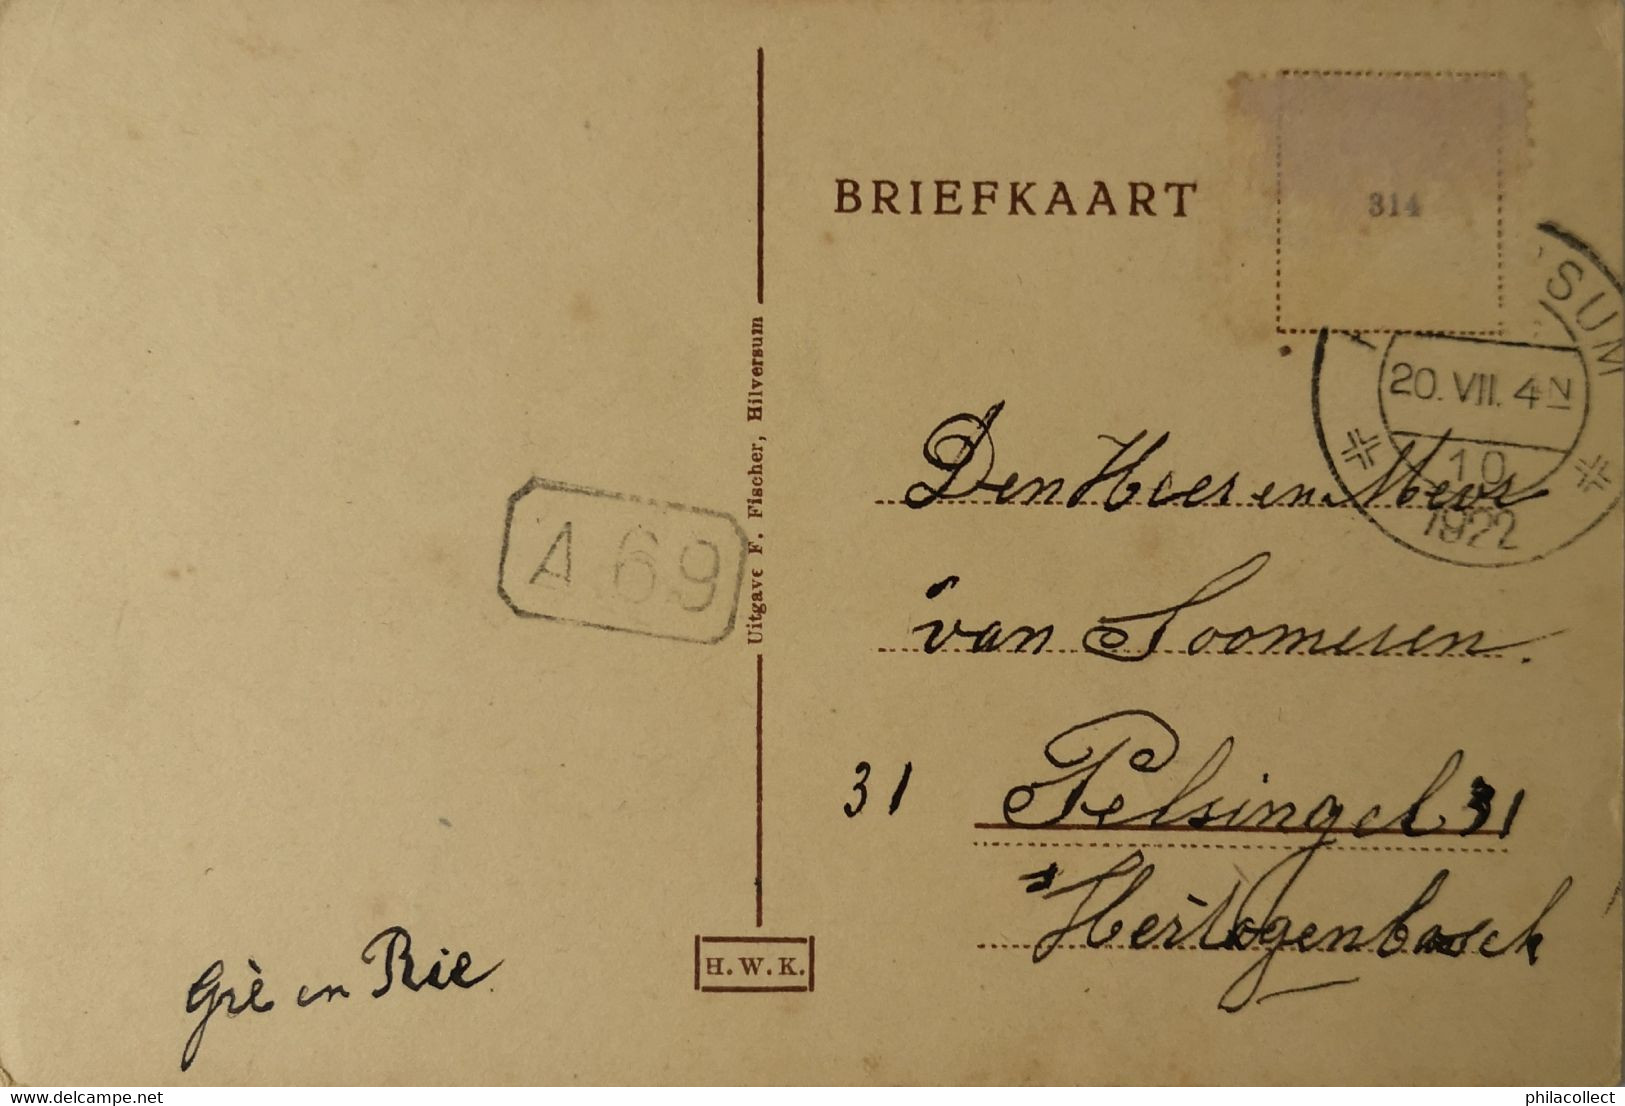 BRIEFKAART
314
SUM
20. VII. 4 N
10
1922
Den Heer en Mevr
van Soomeren.
31 Pelsingel 31
s Hertogenbosch
A 69
Uitgave F. Fischer, Hilversum
H. W. K.
Griè en Rie
delcampe.net
philacollect